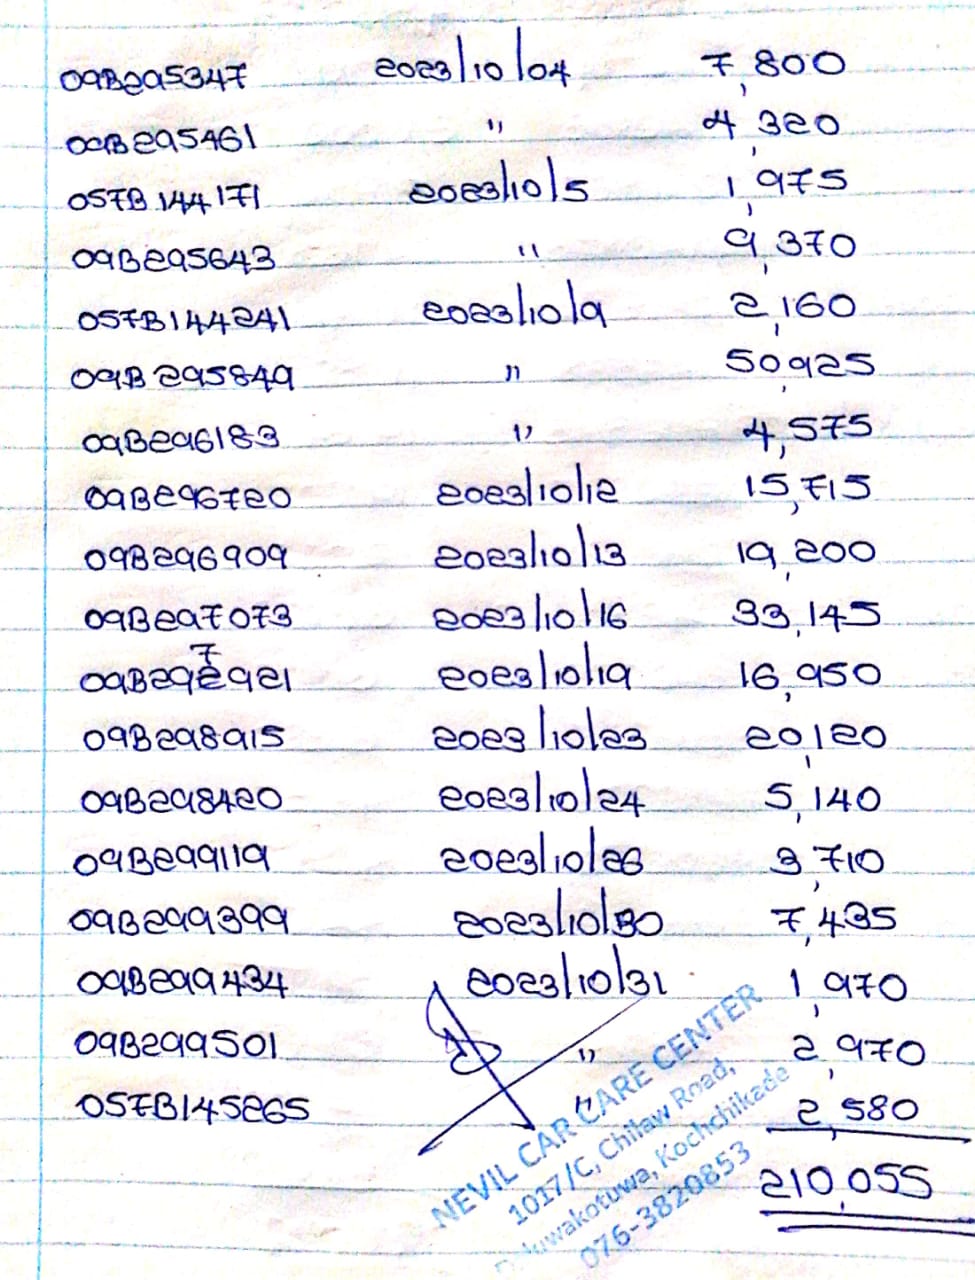 09B295347 2023/10/04 7,800
09B295461 " 4,320
057B144171 2023/10/5 1,975
09B295643 " 9,370
057B144241 2023/10/9 2,160
09B295849 " 50,925
09B296183 " 4,575
09B296720 2023/10/12 15,715
09B296909 2023/10/13 19,200
09B297073 2023/10/16 33,145
7
09B292921 2023/10/19 16,950
09B298915 2023/10/23 20,120
09B298420 2023/10/24 5,140
09B299119 2023/10/26 3,710
09B299399 2023/10/30 7,435
09B299434 2023/10/31 1,970
09B299501 " 2,970
057B145265 " 2,580
210,055
NEVIL CAR CARE CENTER
1017/C, Chilaw Road,
Kochchikade
076-3820853